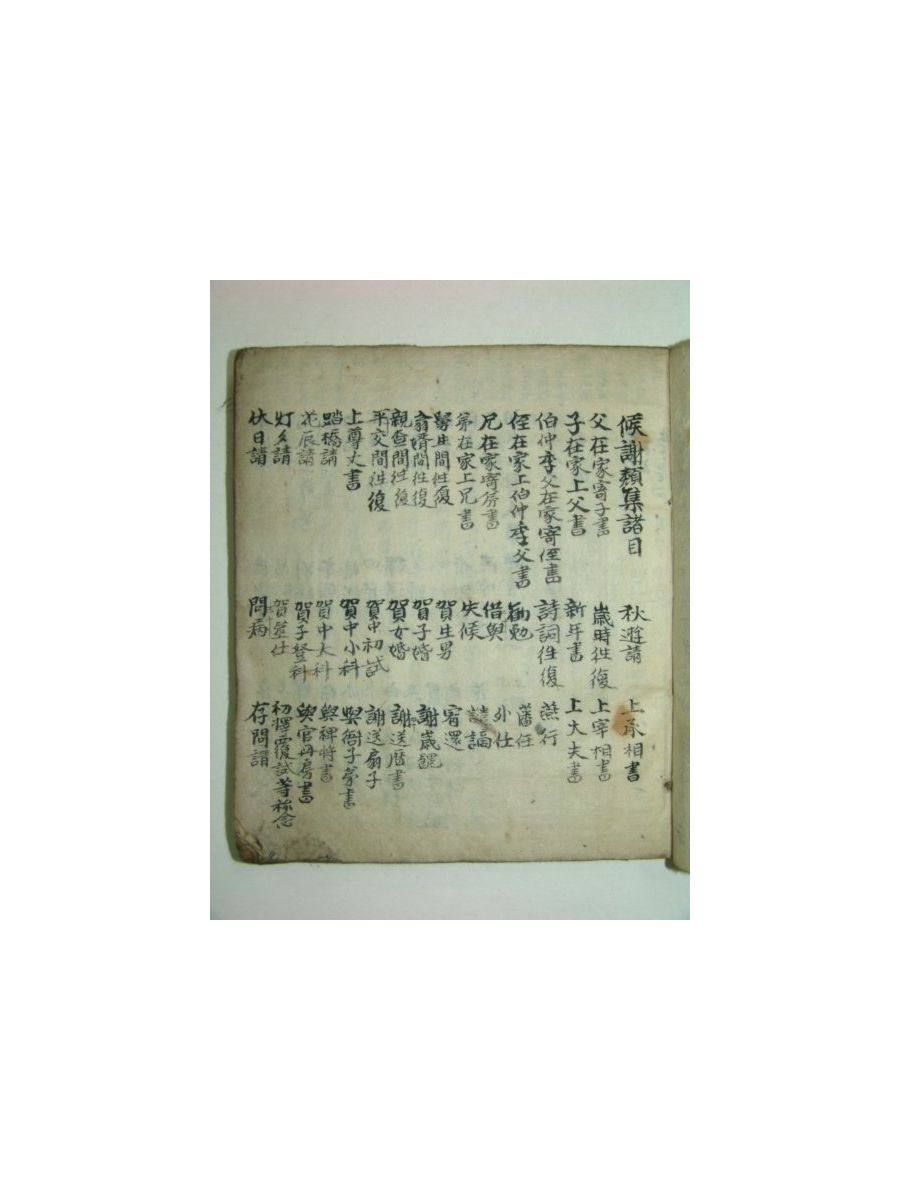 候謝類集諸目
父在家寄子書
子在家上父書
伯仲季父在家寄侄書
侄在家上伯仲季父書
兄在家寄弟書
弟在家上兄書
舅生間往復
翁婿間往復
親查間往復
平交間往復
上尊丈書
踏橋請
花辰請
灯夕請
伏日請
秋遊請
歲時往復
新年書
詩詞往復
勉
借與
失候
賀生男
賀子婚
賀女婚
賀中初試
賀中小科
賀中大科
賀子登科
賀筮仕
問病
上承相書
上宰相書
上大夫書
燕行
藩任
外仕
宥還
謝歲饌
謝送曆書
謝送扇子
與衙子弟書
與裨將書
與官冊房書
初擇覆試等称念
存問